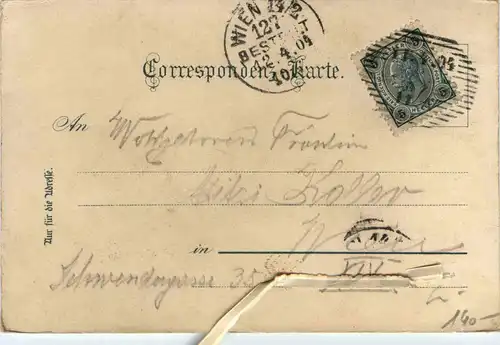 WIEN 13/2
127
BESTELLT
Correspondenz-Karte.
An Wohlgeboren Fräulein
Mitzi Koller
in Wien
Schwendergasse 35
XIV
Nur für die Adresse.
140-